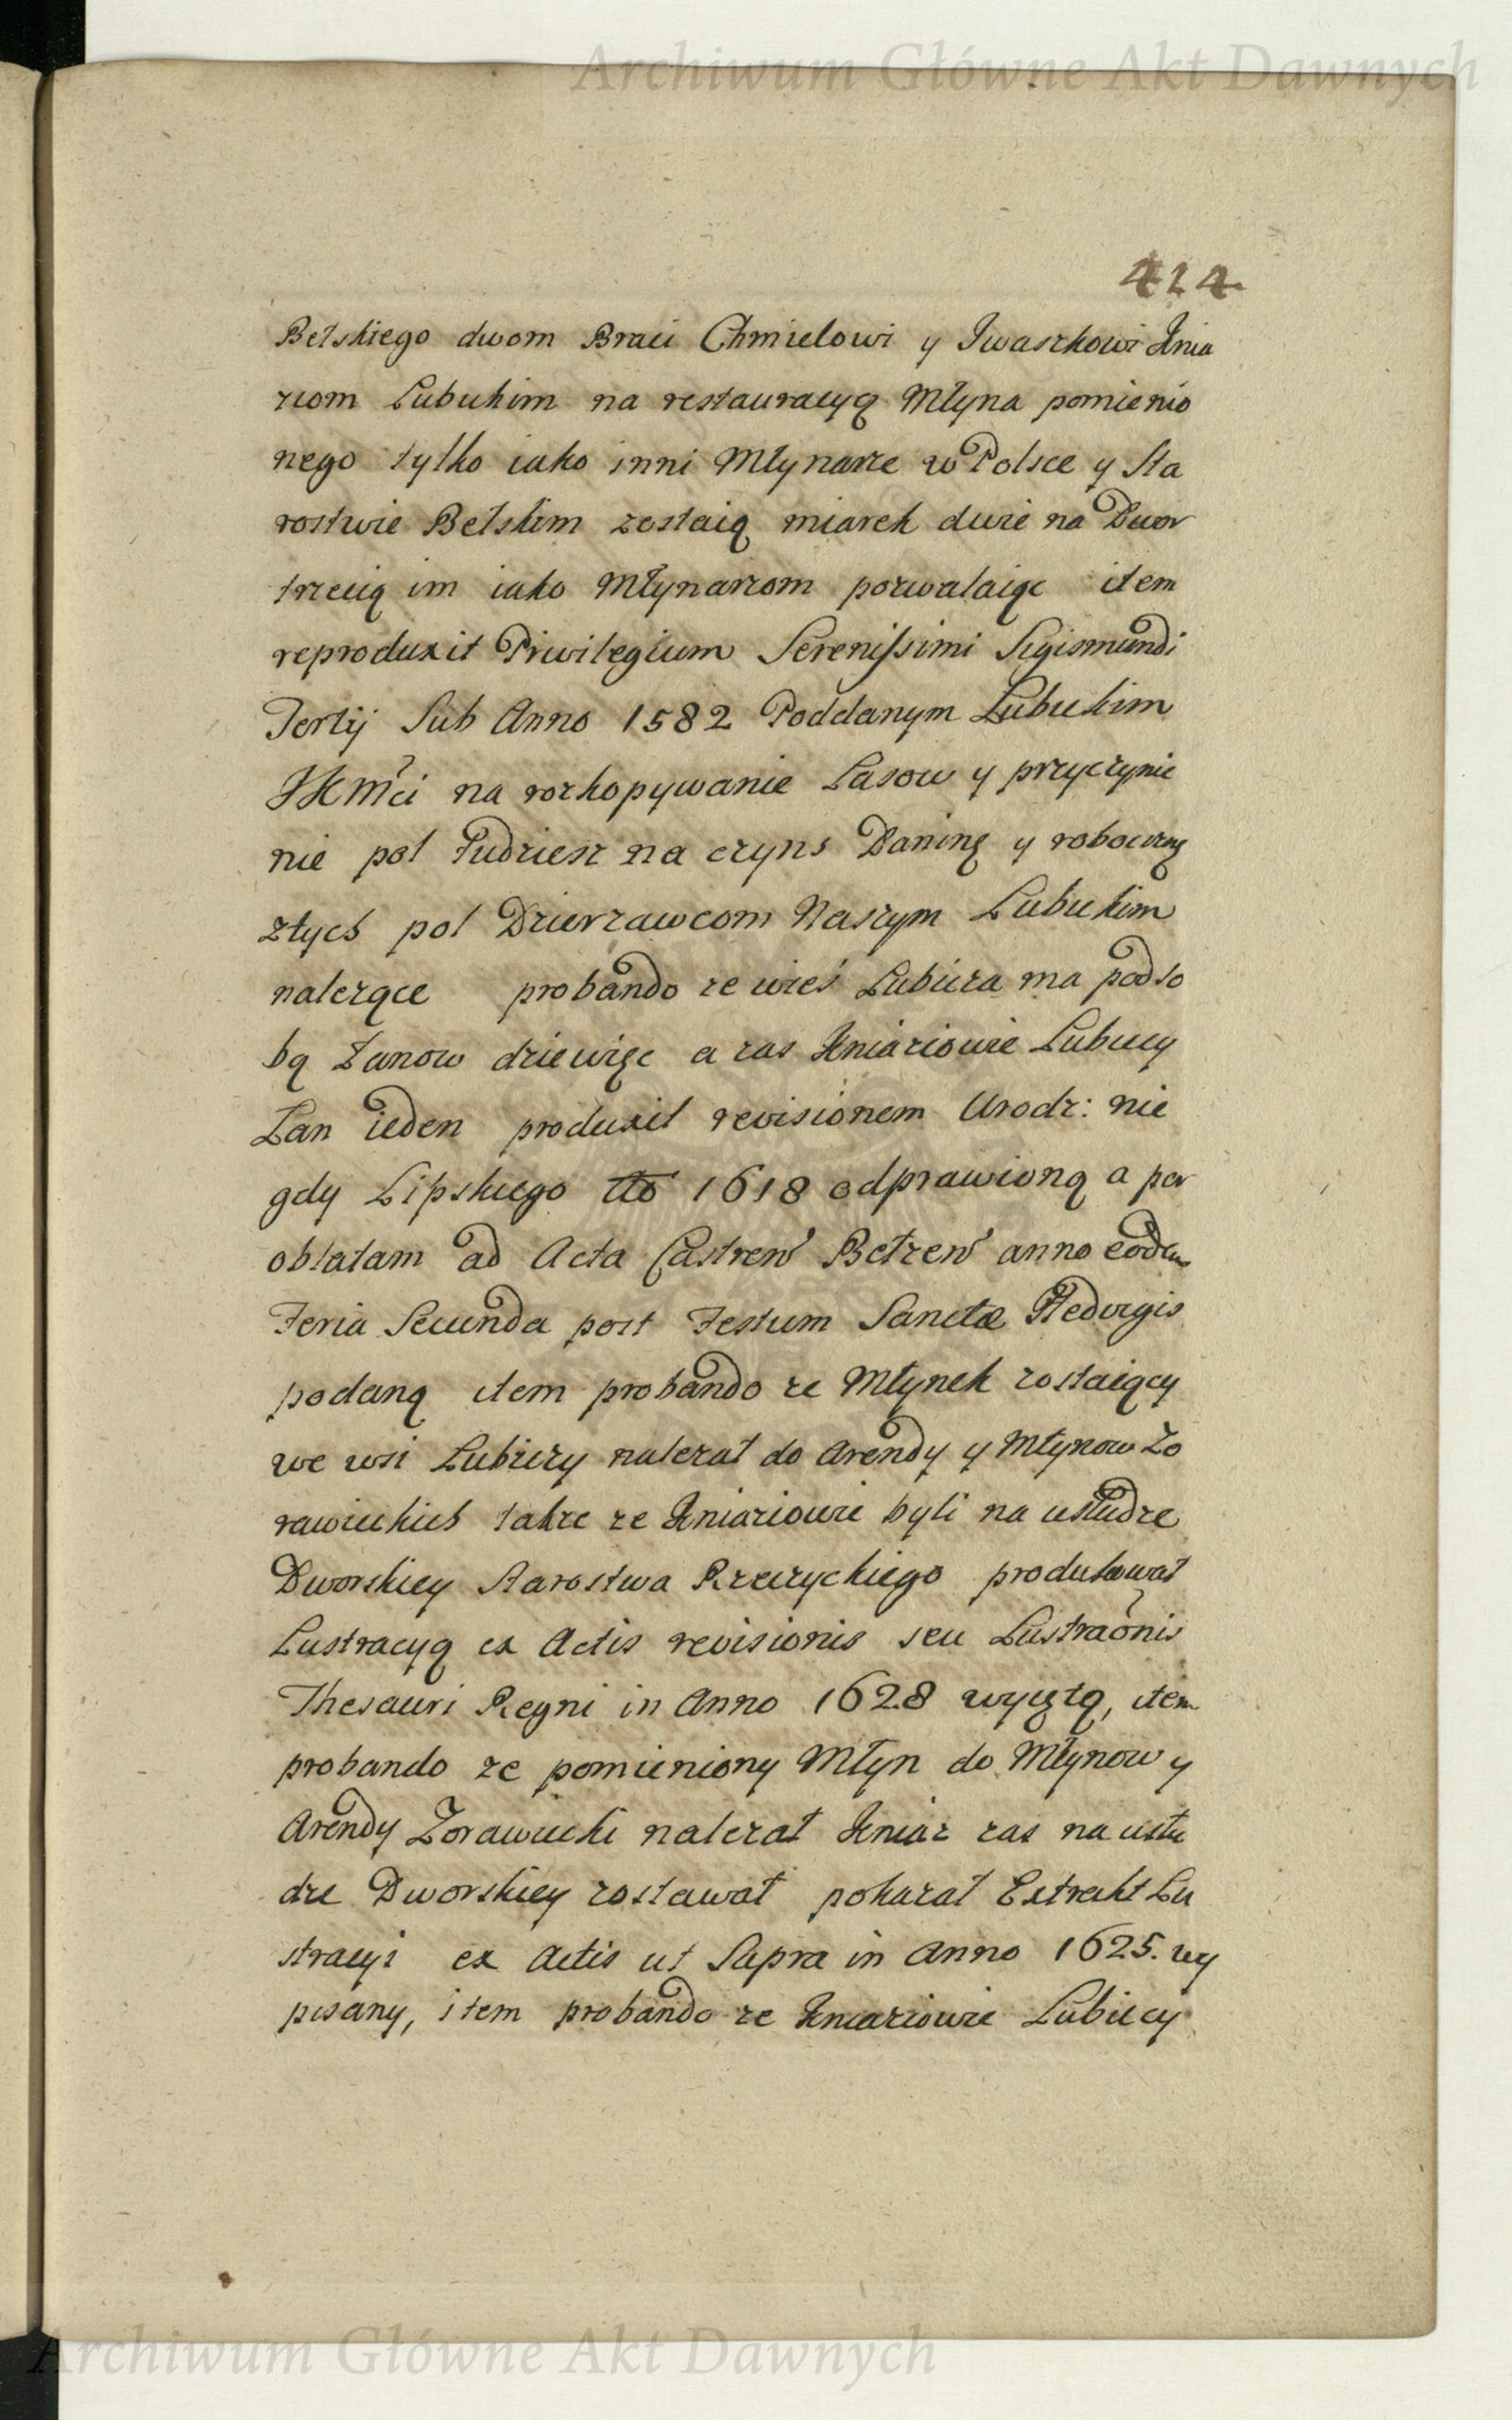 Archiwum Główne Akt Dawnych
424.
Bełskiego dwom Braci Chmielowi y Iwaszkowi Knia
ziom Lubickim na restauracyą Młyna pomienio
nego tylko iako inni Młynarze w Polsce y Sta
rostwie Bełskim zostaią miarek dwie na Dwor
trzecią im iako Młynarzom pozwalaiąc item
reproduxit Priwilegium Serenissimi Sigismundi
Tertij Sub Anno 1582 Poddanym Lubickim
JKMci na rozkopywanie Lasow y przyczynie
nie pol tudziesz na czyns Daninę y roboczną
z tych pol Dzierzawcom Naszym Lubickim
nalezące probando ze wieś Lubicza ma pod so
bą Łanow dziewięc a zas Kniaziowie Lubiccy
Łan ieden produxit revisionem Urodz: nie
gdy Lipskiego Ao 1618 odprawioną a per
oblatam ad Acta Castren Bełzen anno eodem
Feria Secunda post Festum Sanctæ Hedvigis
podaną item probando ze Młynek zostaiący
we wsi Lubiczy nalezał do Arendy y Młynow Zo
rawieckich takze ze Kniaziowie byli na usłudze
Dworskiey Starostwa Rzeczyckiego produkował
Lustracyą ex Actis revisionis seu Lustraonis
Thesauri Regni in Anno 1628 wyiętą, item
probando ze pomieniony Młyn do Młynow y
Arendy Zorawiecki nalezał Kniaz zas na usłu
dze Dworskiey zostawał pokazał Extrakt Lu
stracyi ex Actis ut Supra in Anno 1625. wy
pisany, item probando ze Kniaziowie Lubiccy
Archiwum Główne Akt Dawnych